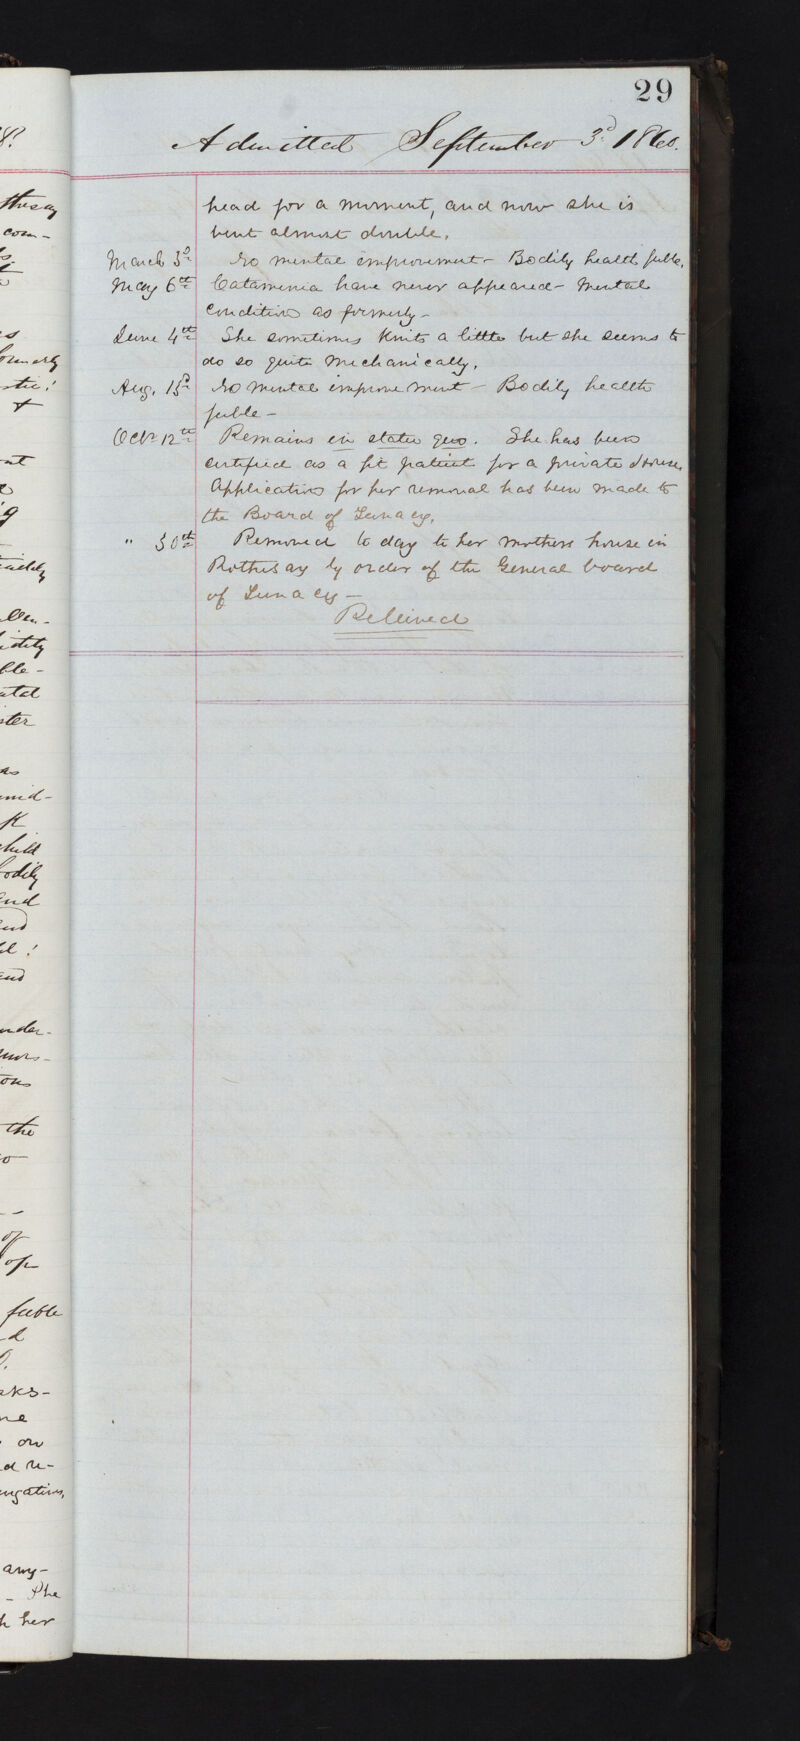 29
Admitted September 3d 1860.
head for a moment, and now she is
bent almost double.
March 3d No mental improvement - Bodily health feeble.
May 6th Catamenia have never appeared - Mental
condition as formerly -
June 4th She sometimes knits a little but she seems to
do so quite mechanically.
Aug. 13d No mental improvement - Bodily health
feeble -
Octr 12th Remains in statu quo. She has been
certified as a fit patient for a private House.
Application for her removal has been made to
the Board of Lunacy.
" 30th Removed to day to her mothers house in
Rothesay by order of the General board
of Lunacy -
Relieved
thesay
com-
formerly
+
bodily
and
the
of
feeble
on
any-
She
her